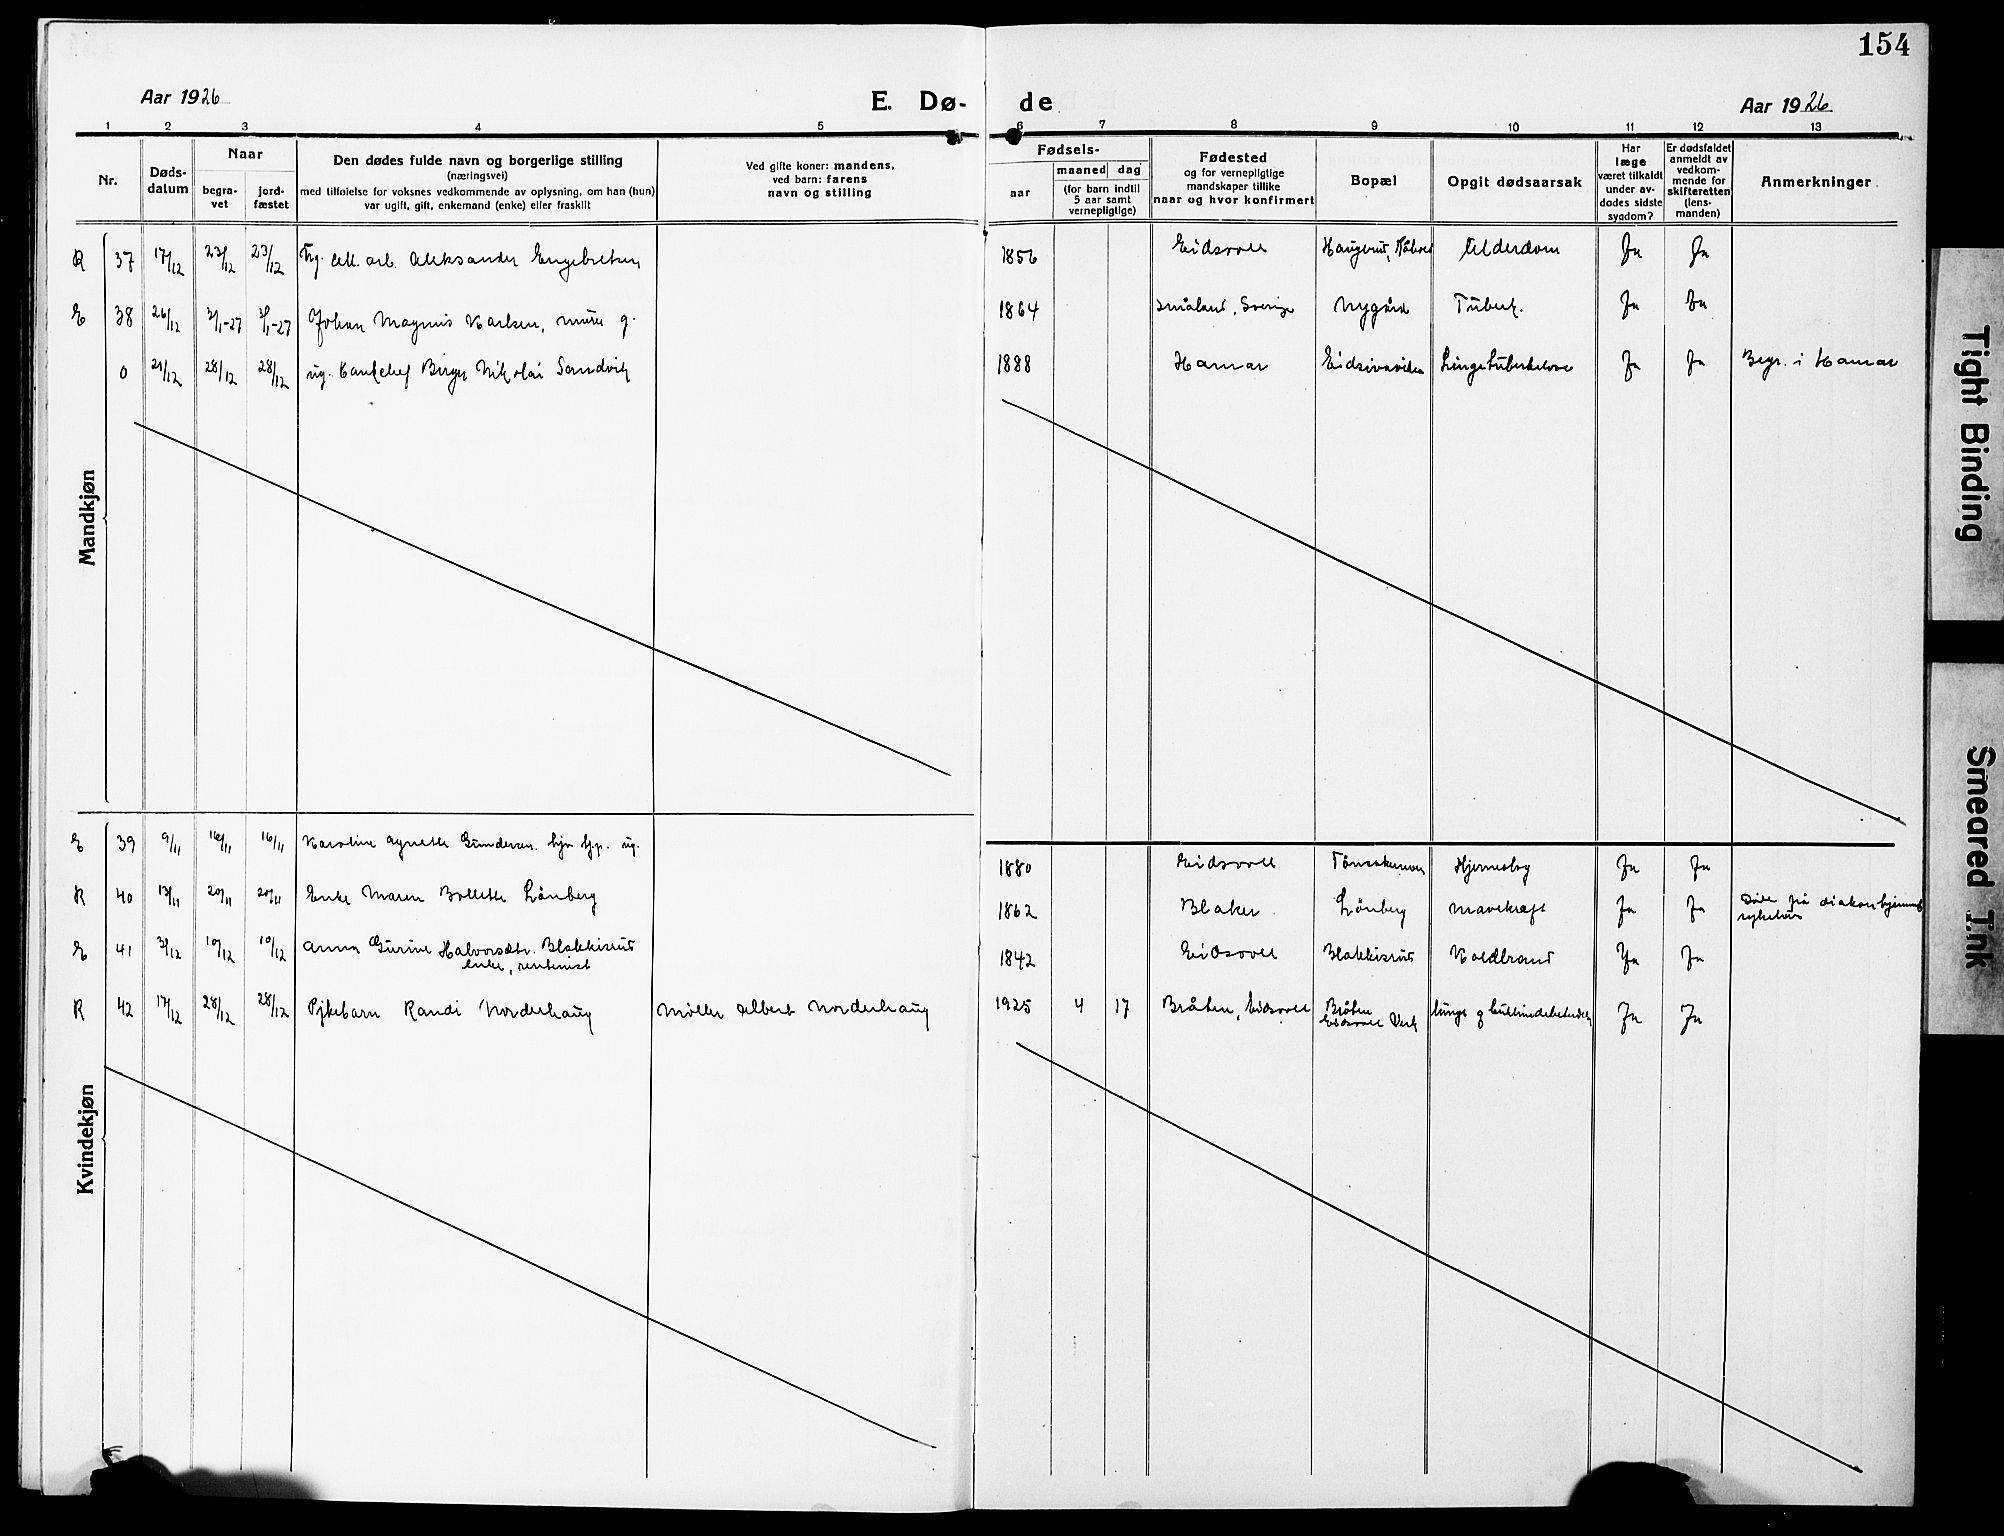 154
Aar 1926
E. Dø-
de
Aar 1926
1 2 3 4 5 6 7 8 9 10 11 12 13
Nr.
Døds-
datum
Naar
begra-
vet
jord-
fæstet
Den dødes fulde navn og borgerlige stilling
(næringsvei)
med tilføielse for voksnes vedkommende av oplysning, om han (hun)
var ugift, gift, enkemand (enke) eller fraskilt
Ved gifte koner: mandens,
ved barn: farens
navn og stilling
Fødsels-
aar
maaned dag
(for barn indtil
5 aar samt
vernepligtige)
Fødested
og for vernepligtige
mandskaper tillike
naar og hvor konfirmert
Bopæl
Opgit dødsaarsak
Har
læge
været tilkaldt
under av-
dødes sidste
sygdom?
Er dødsfaldet
anmeldt av
vedkom-
mende for
skifteretten
(lens-
manden)
Anmerkninger
Mandkjøn
R 37 17/12 23/12 23/12 arb. Aleksander Engebretsen 1856 Eidsvoll Haugerud, Alderdom Ja Ja
E 38 26/12 3/1-27 3/1-27 Johan Magnus Karlsen, murer g. 1864 Småland, Sverige Nygård Tuberk. Ja Ja
0 21/12 28/12 28/12 ug. Birger Nikolai Sandvik 1888 Hamar Lungetuberkulose Ja Ja Begr. i Hamar
Kvindekjøn
E 39 9/11 16/11 16/11 Karoline Agnethe Gundersen ug. 1880 Eidsvoll Ja Ja
R 40 13/11 20/11 20/11 Enke Maren Bollette Lönberg 1862 Blaker Lönberg Mavekræft Ja Ja Døde på diakonhjemmets
sykehus
E 41 3/12 10/12 10/12 Anna Gurine Halvorsdtr. Blakkisrud
enke, rentenist 1842 Eidsvoll Blakkisrud Koldbrand Ja Ja
R 42 17/12 28/12 28/12 Pikebarn Randi Norderhaug Møller Albert Norderhaug 1925 4 17 Bråten, Eidsvoll Bråten
Eidsvoll Verk Ja Ja
Tight Binding
Smeared Ink